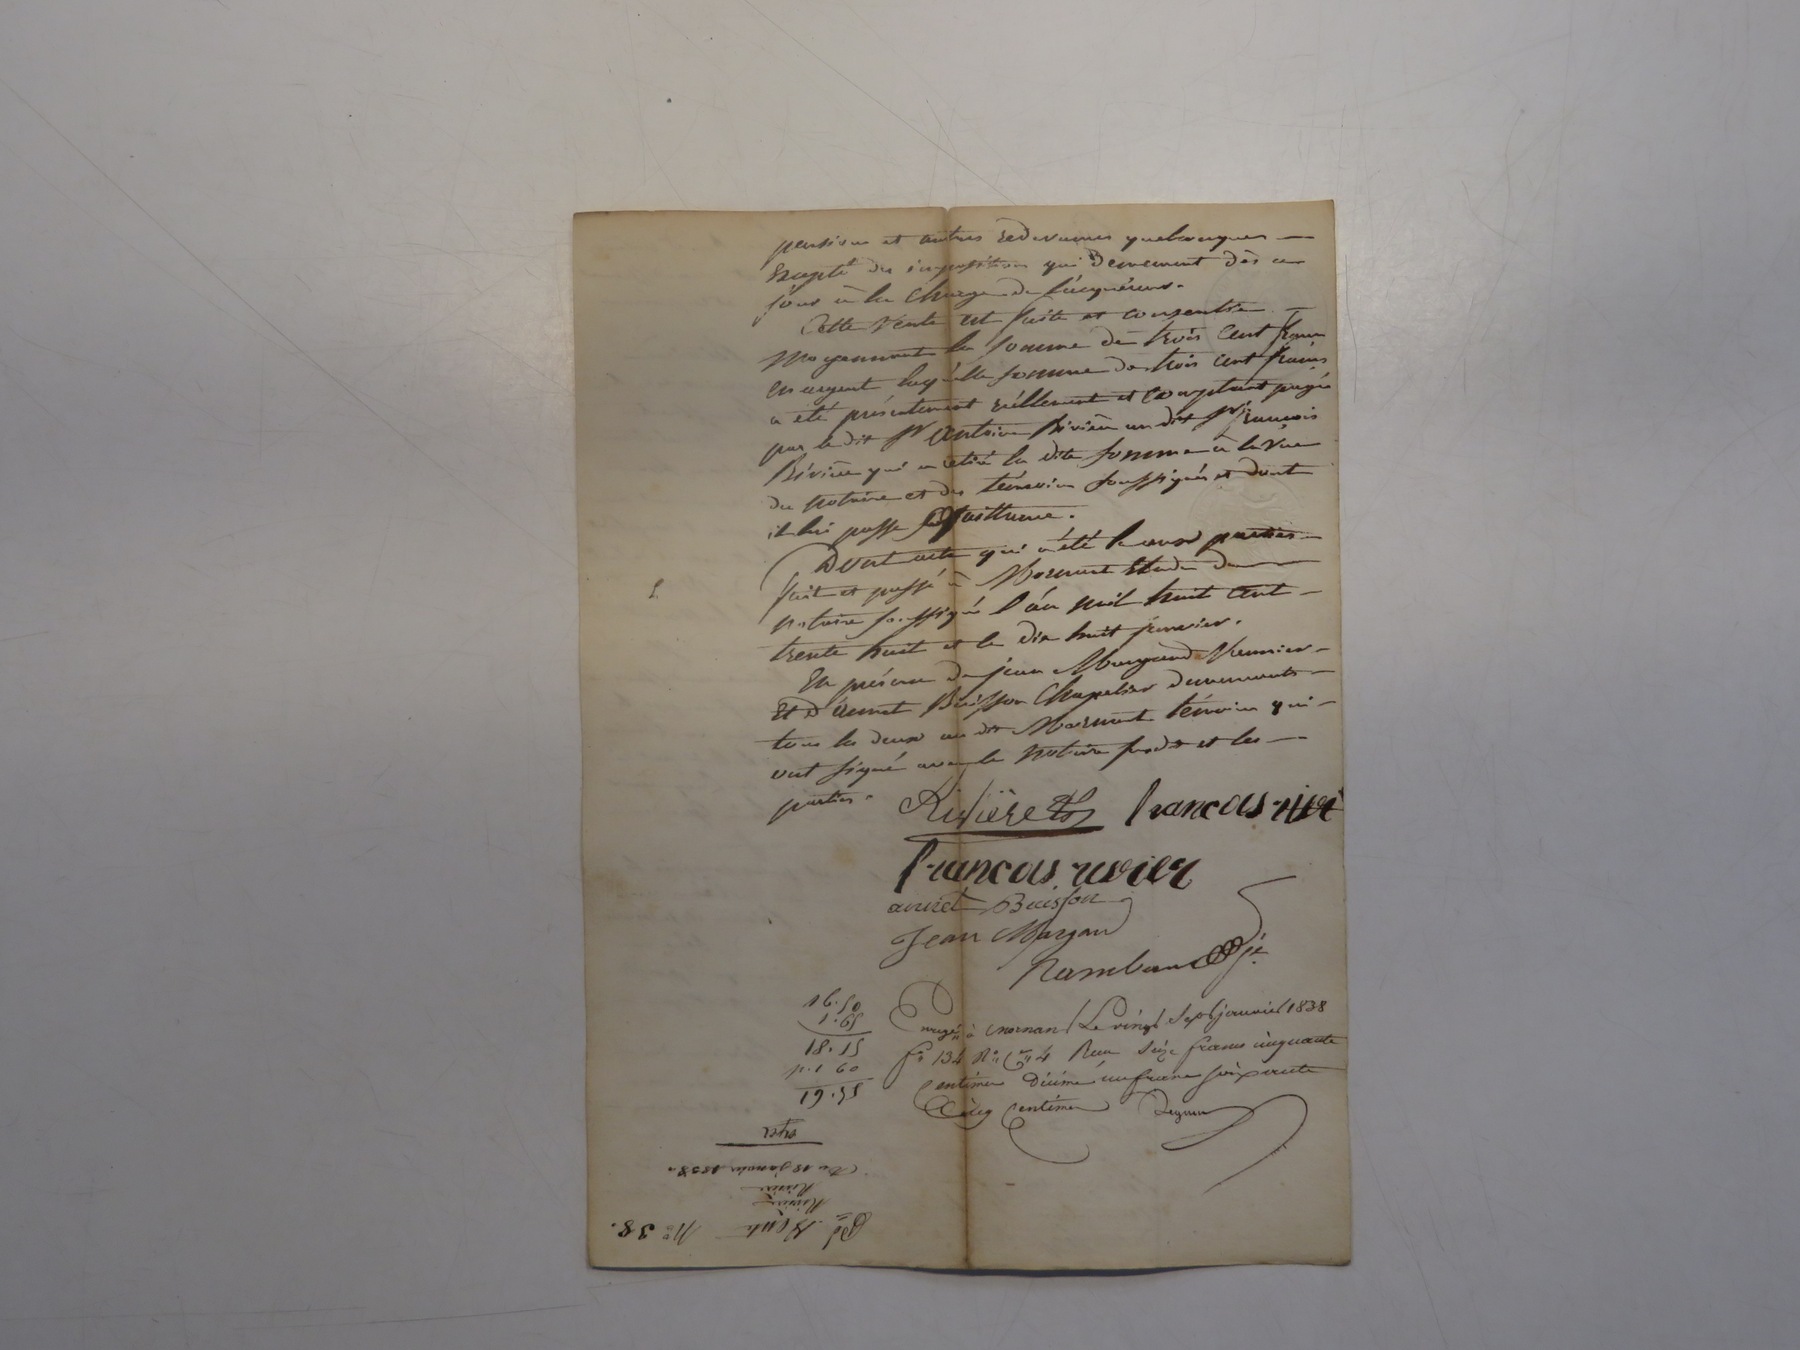 pensions et autres redevances quelconques —
Excepté des impositions qui deviennent dès ce
jour à la charge de l'acquéreur.
Cette vente est faite et consentie —
Moyennant la somme de trois cent francs
en argent laquelle somme de trois cent francs
a été présentement réellement et comptant payée
par le dit Sr Antoine Rivière au dit Sr François
Rivière qui a retiré la dite somme à la vue
du notaire et des témoins soussignés et dont
il lui passe quittance.
Dont acte qui a été lu aux parties —
fait et passé à Mornant Etude du
notaire soussigné l'an mil huit cent —
trente huit et le dix huit janvier.
En présence de jean Margand Meunier —
Et d'Annet Buisson Chapelier demeurants —
tous les deux au dit Mornant témoins qui —
ont signé avec le notaire susdit et les —
parties.
Rivière francois rivi
francois rivier
annet Buisson
Jean Margan
Rambaud
Enregé à Mornant Le vingt Sept janvier 1838
fo 134 Ro Ce 4 Reçu Seize francs cinquante
Centimes Décime un franc soixante
Cinq Centimes
16.50
1.65
18.15
55.61
Expé
Du 18 janvier 1838.
Rivière
Rivière
Vente No 38.